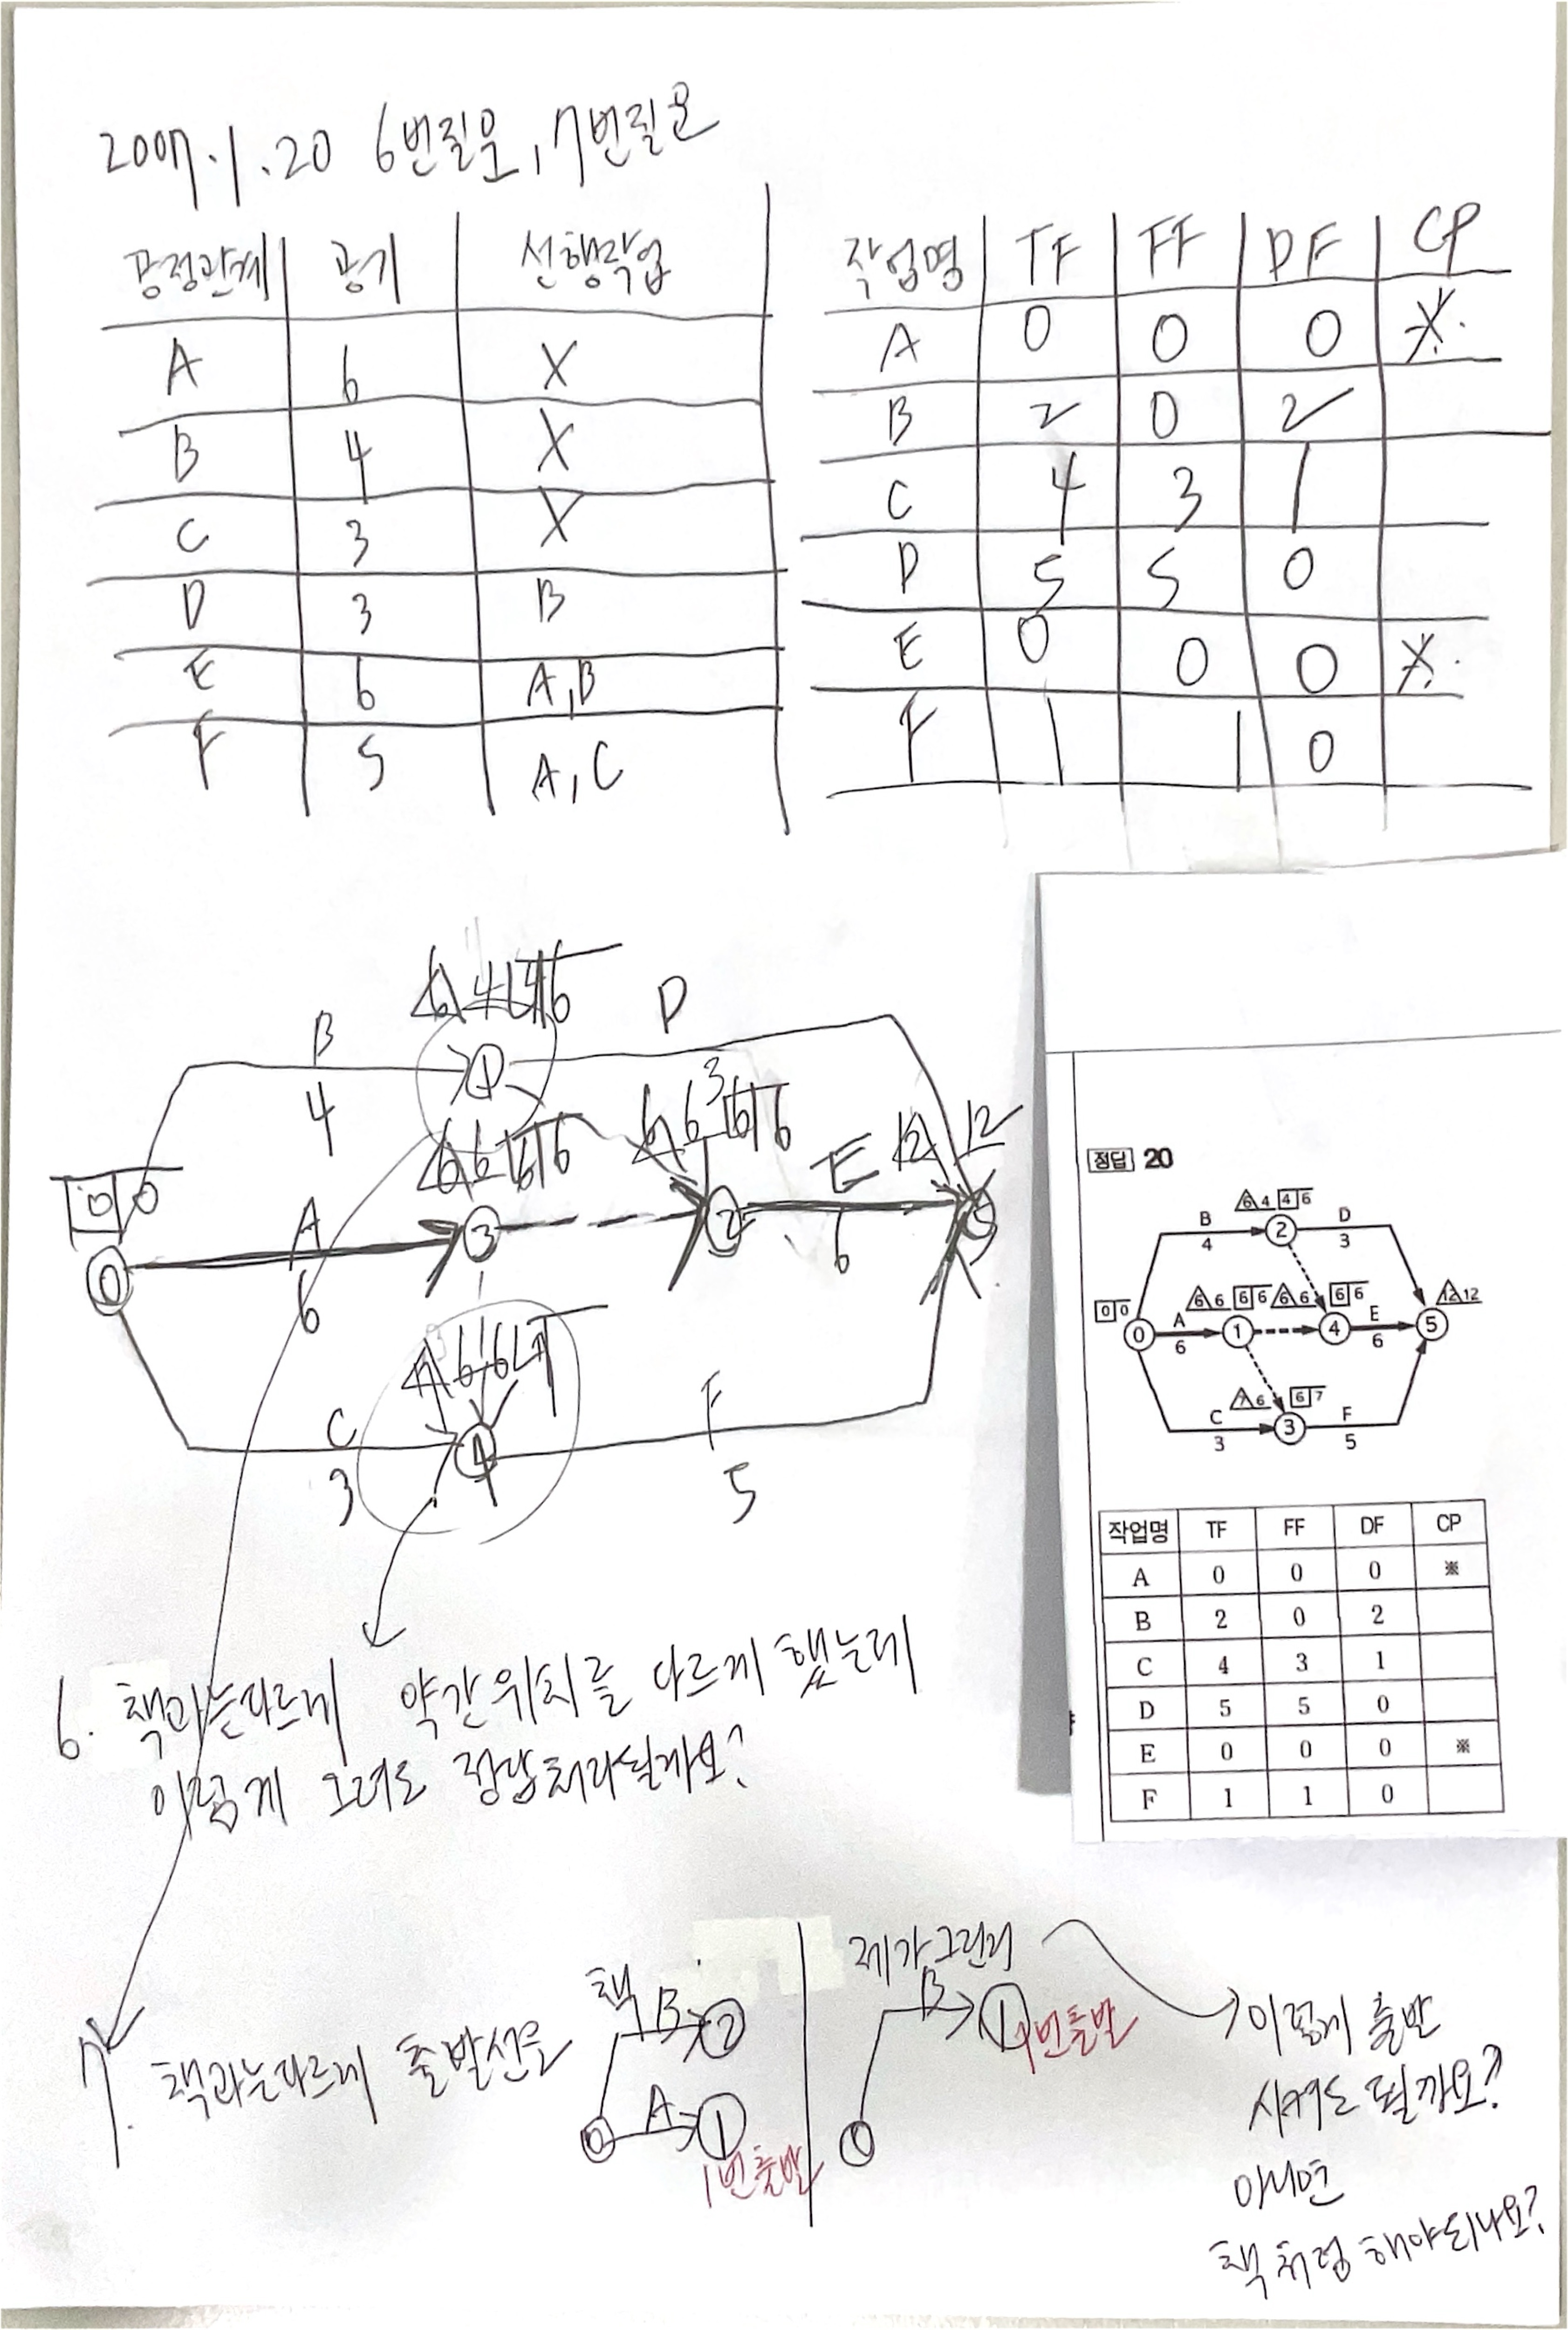 2007.1.20 6번질문, 7번질문
공정관계 공기 선행작업
A 6 X
B 4 X
C 3 X
D 3 B
E 6 A,B
F 5 A,C
작업명 TF FF DF CP
A 0 0 0 ※
B 2 0 2
C 4 3 1
D 5 5 0
E 0 0 0 ※
F 1 1 0
6 4 4 6
B
4
1
D
3
6 6 6 6
6 6 6 6
E
6
12 12
0 0
0
A
6
3
2
5
7 6 6 7
C
3
4
F
5
정답 20
6 4 4 6
B
4
2
D
3
0 0
0
A
6
6 6 6 6
1
6 6 6 6
4
E
6
12 12
5
7 6 6 7
C
3
3
F
5
작업명 TF FF DF CP
A 0 0 0 ※
B 2 0 2
C 4 3 1
D 5 5 0
E 0 0 0 ※
F 1 1 0
6. 책과는다르게 약간위치를 다르게 했는데
이렇게 그려도 정답처리될까요?
7. 책과는다르게 출발선을
책
B 2
0 A 1
1번출발
제가그린거
B 1
1번출발
0
이렇게 출발
시켜도 될까요?
아니면
책처럼 해야되나요?